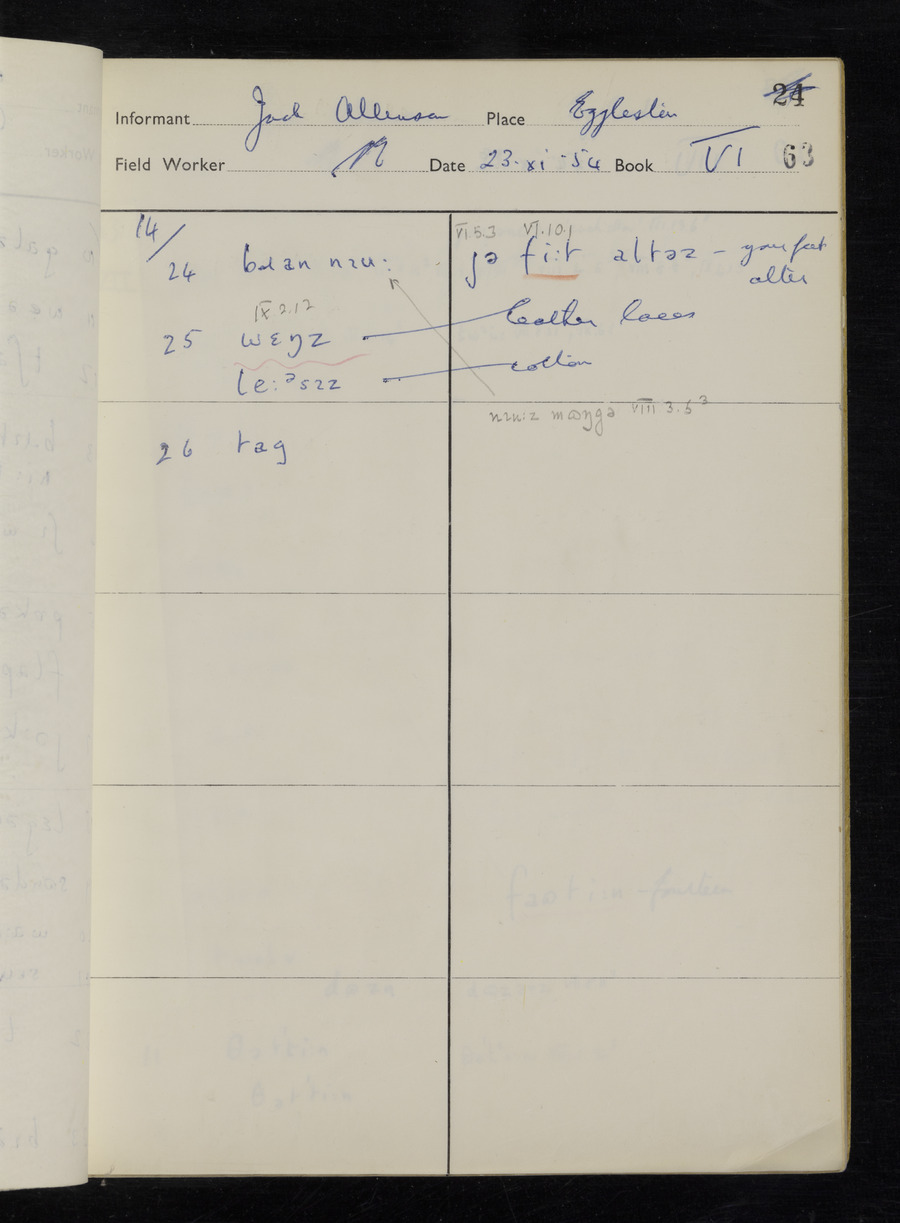 24
Informant Jack Allenson Place Eggleston
Field Worker Date 23·xi·54 Book VI 63
14/
VI.5.3 VI.10.1
24 nɪu: jə fi:t altəz – your feet
alter
IX 2.12
25 wɛŋz leather laces
le:ᵊsɪz cotton
nɪu:z mɒŋgə VIII 3.6 3
26 tag